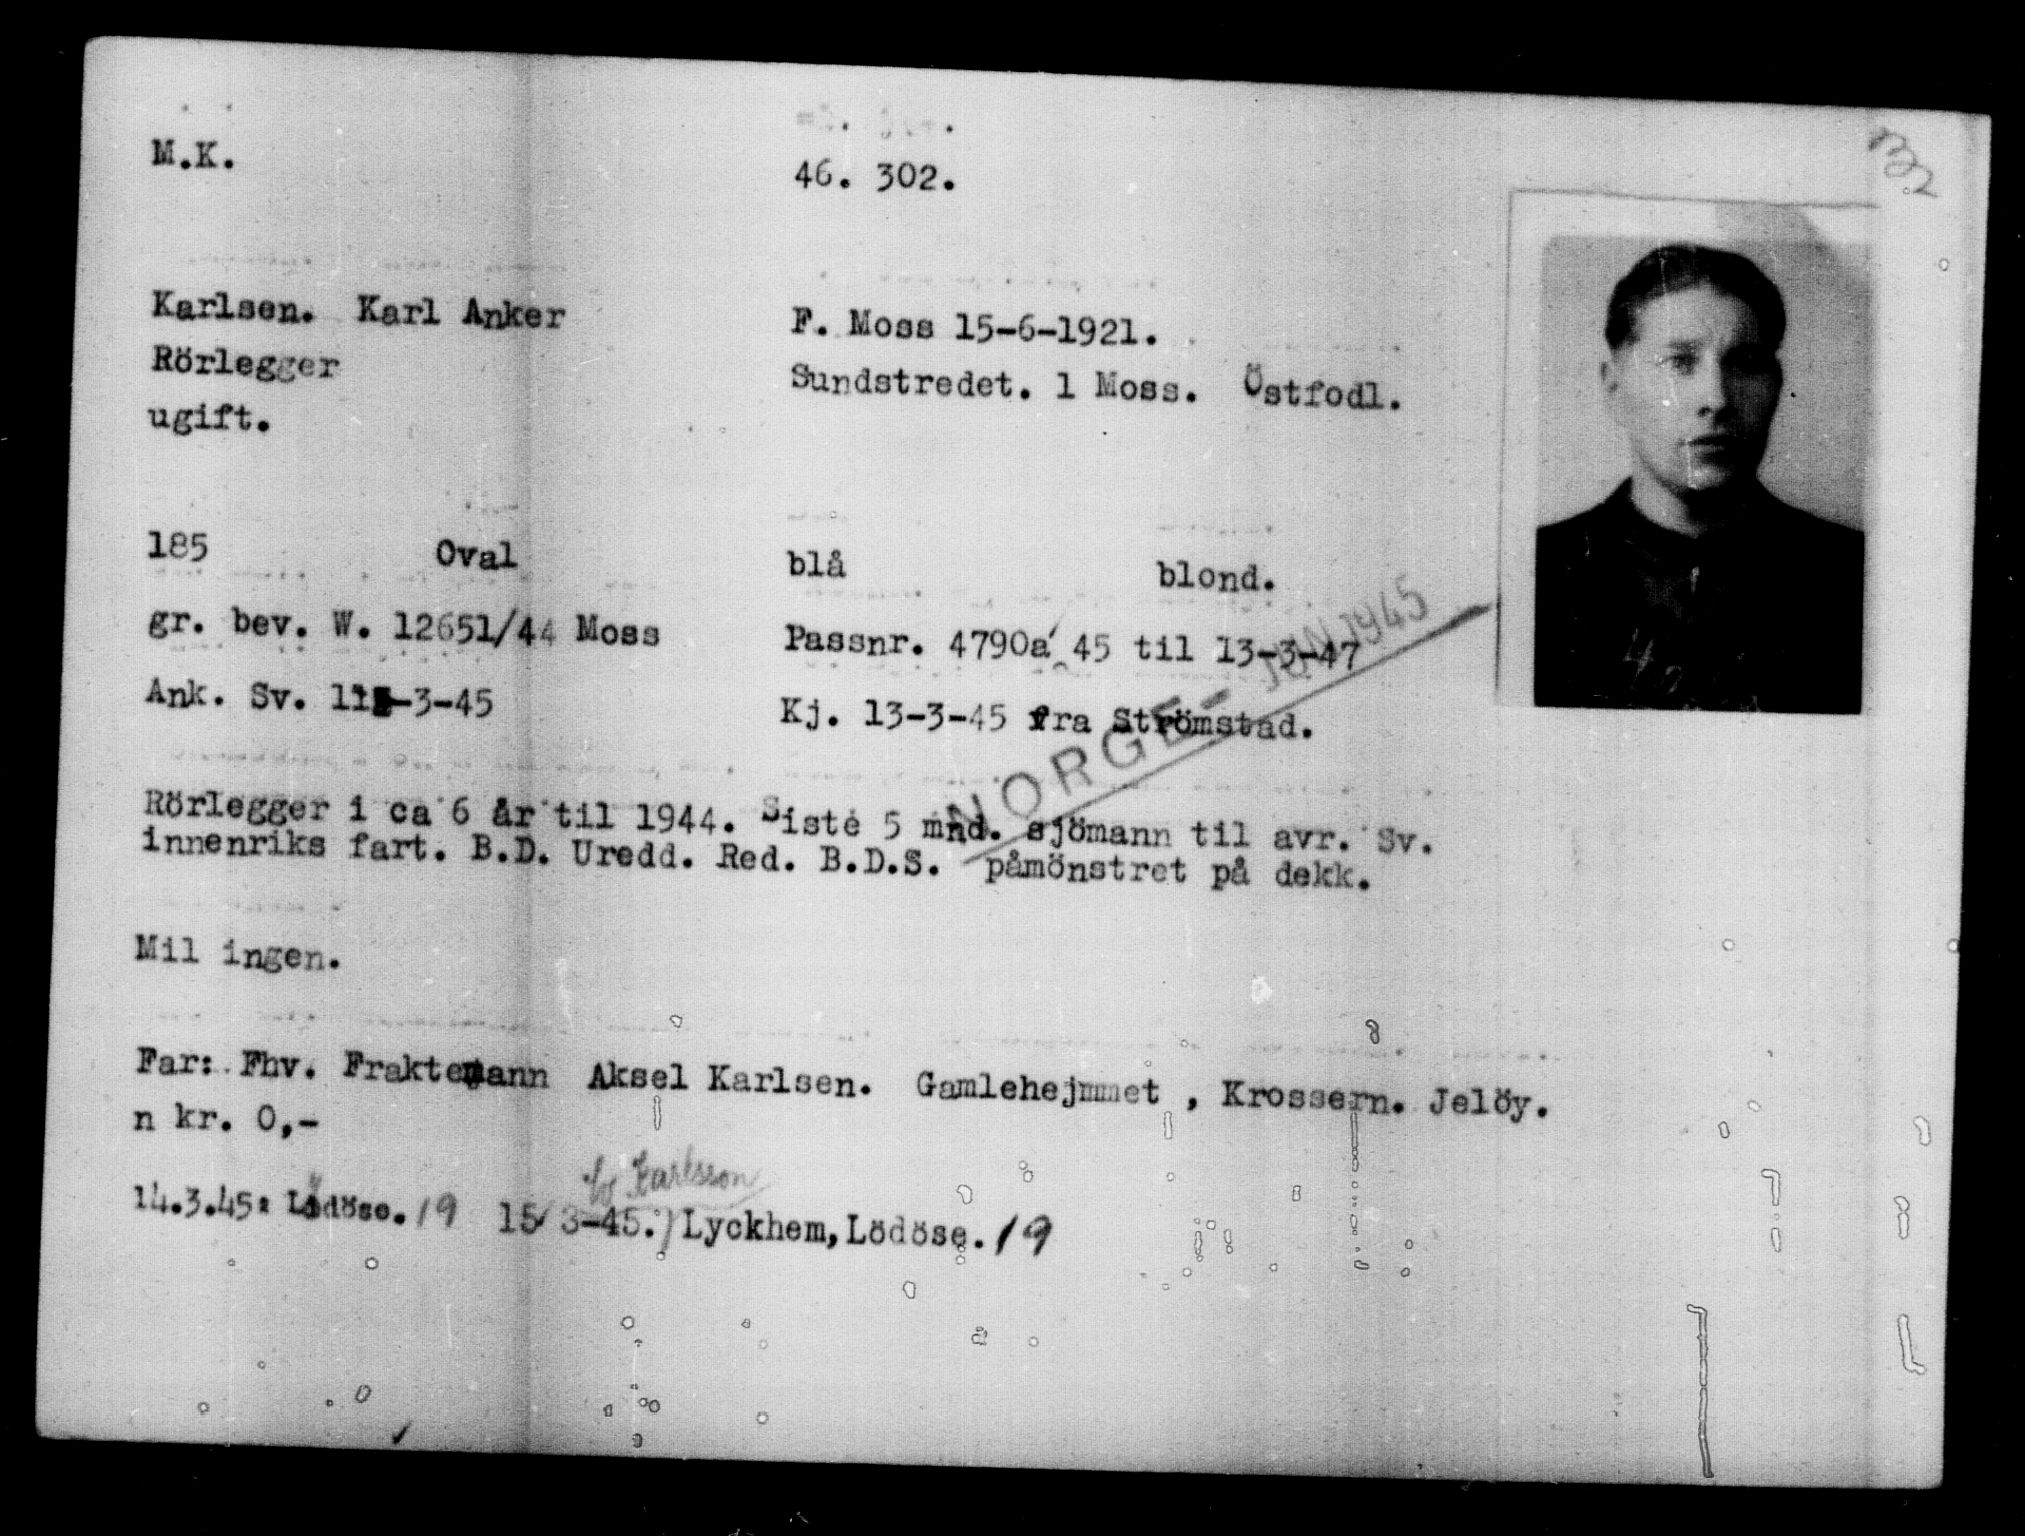 M.K. 46. 302.
Karlsen. Karl Anker F. Moss 15-6-1921.
Rörlegger Sundstredet. 1 Moss. Östfodl.
ugift.
185 Oval blå blond.
gr. bev. W. 12651/44 Moss Passnr. 4790a 45 til 13-3-47
Ank. Sv. 11-3-45 Kj. 13-3-45 fra Strömstad.
NORGE - JUN 1945
Rörlegger i ca 6 år til 1944. Siste 5 mnd. sjömann til avr. Sv.
innenriks fart. B.D. Uredd. Red. B.D.S. påmönstret på dekk.
Mil ingen.
Far: Fhv. Fraktemann Aksel Karlsen. Gamlehejmmet , Krossern. Jelöy.
n kr. 0,-
c/o Karlsson
14.3.45: Lödöse. 19 15/3-45. Lyckhem, Lödöse. 19